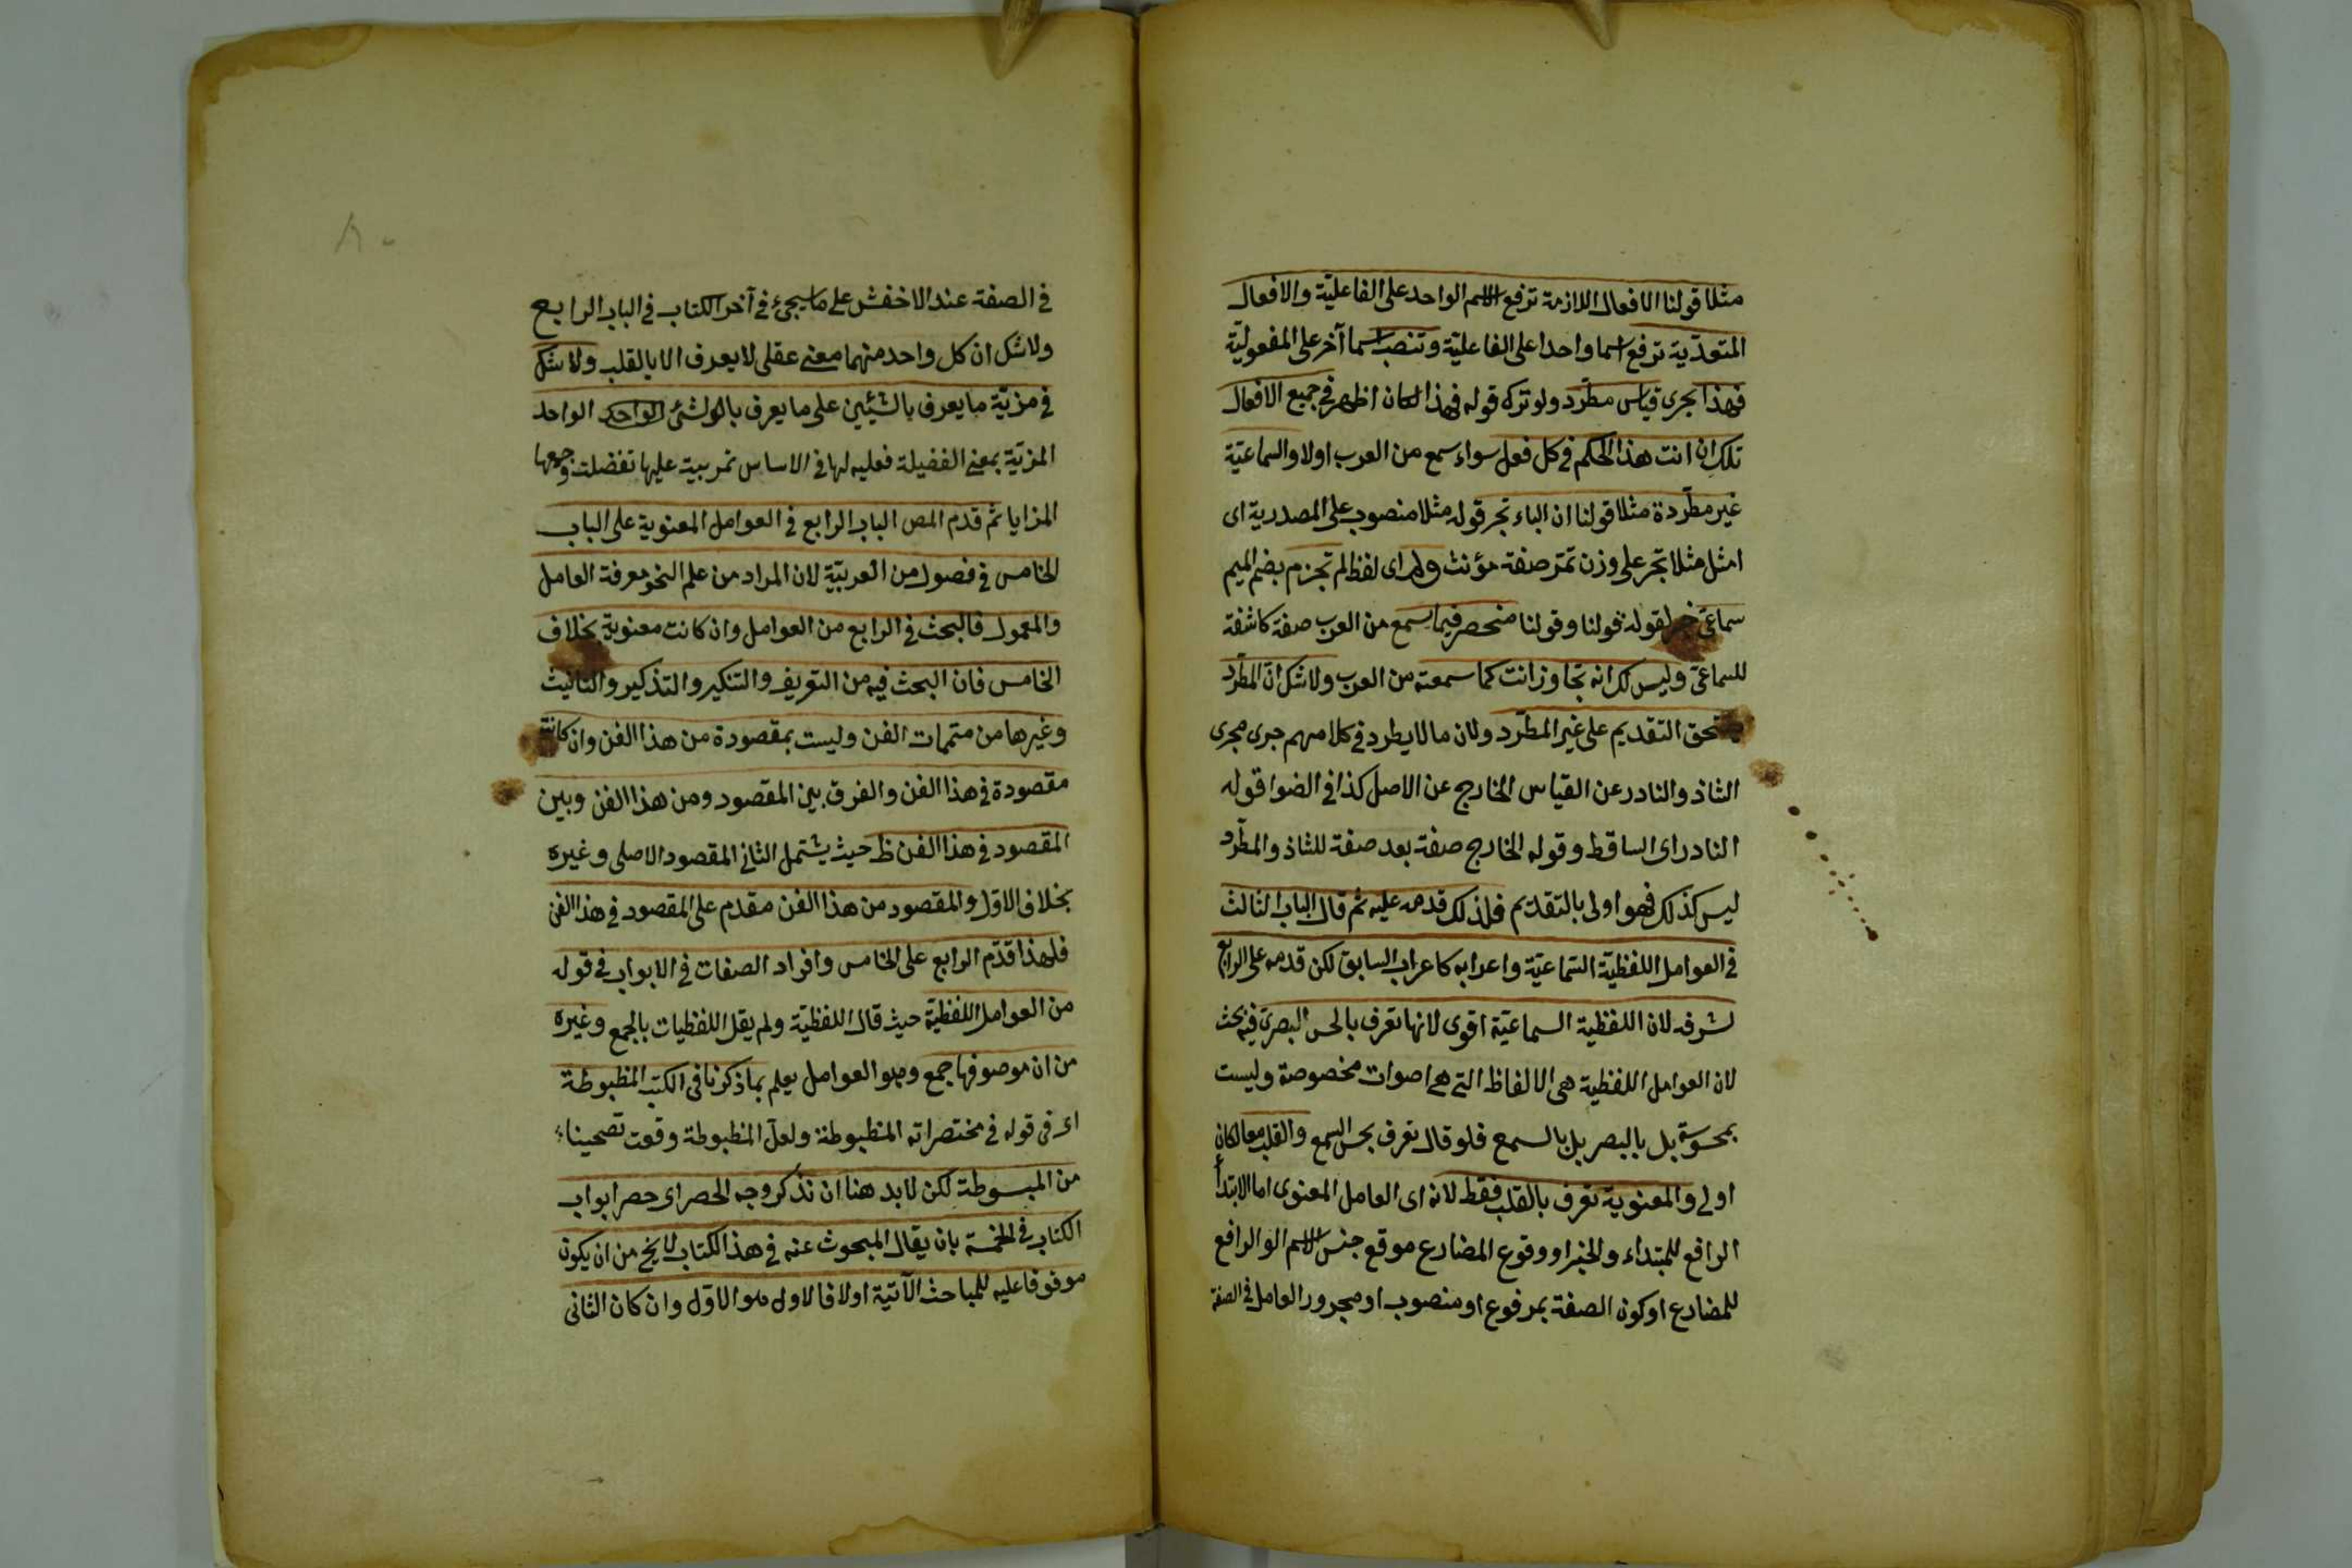 مثلا قولنا الافعال اللازمة ترفع الاسم الواحد على الفاعلية والافعال
المتعدّية ترفع اسما واحدا على الفاعليّة وتنصب اسما آخر على المفعوليّة
فهذا يجرى قياس مطّرد ولو ترك قوله فهذا لكان اظهر فى جميع الافعال
تلك ان انت هذا الحكم فى كل فعل سواء سمع من العرب اولا والسماعيّة
غير مطّردة مثلا قولنا ان الباء تجر قوله مثلا منصوب على المصدرية اى
امثل مثلا تجر على وزن تمرّ صفة مؤنث ولم اى لفظ لم تجزم بضم الميم
سماعىّ خبر لقوله قولنا وقولنا منحصر فيما يسمع من العرب صفة كاشفة
للسماعىّ وليس لك انه تجاوز انت كما سمعته من العرب ولا شك انّ المطّرد
يستحق التقديم على غير المطّرد ولان مالا يطرد فى كلامهم جرى مجرى
الشاذ والنادر عن القياس الخارج عن الاصل كذا فى الضوا قوله
النادر اى الساقط وقوله الخارج صفة بعد صفة للشاذ والمطّرد
ليس كذلك فهو اولى بالتقديم فلذلك قدمه عليه ثم قال الباب الثالث
فى العوامل اللفظيّة السّماعيّة واعرابه كاعراب السابق لكن قدمه على الرابع
لشرفه لان اللفظية السماعيّة اقوى لانها تعرف بالحس البصرىّ فيه بحث
لان العوامل اللفظية هى الالفاظ التى هى اصوات مخصوصة وليست
بمحسوسة بل بالبصر بل بالسمع فلو قال تعرف بحس السمع والقلب معا لكان
اولى والمعنوية تعرف بالقلب فقط لانه اى العامل المعنوى اما الابتدأ
الرافع للمبتداء والخبر او وقوع المضارع موقع جنس الاسم الو الرافع
للمضارع او كون الصفة بمرفوع او منصوب او مجرور العامل فى الصفة
٨٠
فى الصفة عند الاخفش على ما سيجئ فى آخر الكتاب فى الباب الرابع
ولا شك ان كل واحد منهما معنى عقلى لا يعرف الا بالقلب ولا شك
فى مزيّة ما يعرف بالشيئين على ما يعرف بالشئ الواحد الواحد
المزيّة بمعنى الفضيلة فعليه لها فى الاساس عليها تفضلت وجمعها
المزايا ثم قدم المص الباب الرابع فى العوامل المعنوية على الباب
الخامس فى فصول من العربيّة لان المراد من علم النحو معرفة العامل
والمعمول فالبحث فى الرابع من العوامل وان كانت معنوية بخلاف
الخامس فان البحث فيه من التعريف والتنكير والتذكير والتأنيث
وغيرها من متممات الفن وليست بمقصودة من هذا الفن وان كانت
مقصودة فى هذا الفن والفرق بين المقصود ومن هذا الفن وبين
المقصود فى هذا الفن ظ حيث يشتمل الثانى المقصود الاصلى وغيره
بخلاف الاوّل والمقصود من هذا الفن مقدم على المقصود فى هذا الفن
فلهذا قدّم الرابع على الخامس وافراد الصفات فى الابواب فى قوله
من العوامل اللفظيّة حيث قال اللفظيّة ولم يقل اللفظيات بالجمع وغيره
من ان موصوفها جمع وهو العوامل يعلم بما ذكرنا فى الكتب المظبوطة
اى فى قوله فى مختصراته المنظبوطة ولعل المنظبوطة وقعت تصحيفا
من المبسوطة لكن لابد هنا ان نذكر وجه الحصر اى حصر ابواب
الكتاب فى الخمسة بان يقال المبحوث عنه فى هذا الكتاب لا يخ من ان يكون
موقوفا عليه للمباحث الآتية اولا فالاول هو الاوّل وان كان الثانى